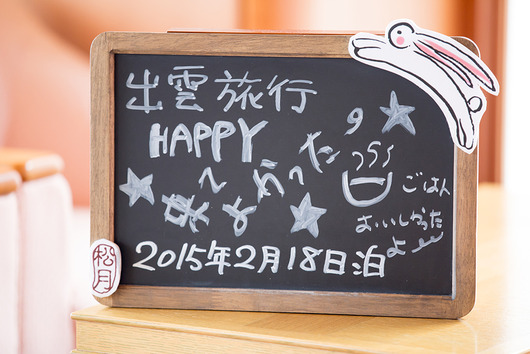 出雲旅行
HAPPY
ごはん
おいしかった
よー
2015年2月18日泊
松月